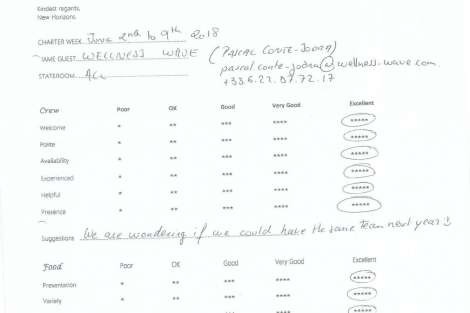 Kindest regards,
New Horizons
CHARTER WEEK June 2nd to 9th 2018
NAME GUEST WELLNESS WAVE (PASCAL CONTE-JODRA)
pascal.conte-jodra@wellness-wave.com
STATEROOM ALL +33.6.22.07.72.17
Crew Poor OK Good Very Good Excellent
Welcome * ** *** **** *****
Polite * ** *** **** *****
Availability * ** *** **** *****
Experienced * ** *** **** *****
Helpful * ** *** **** *****
Presence * ** *** **** *****
Suggestions We are wondering if we could have the same team next year
Food Poor OK Good Very Good Excellent
Presentation * ** *** **** *****
Variety * ** *** **** *****